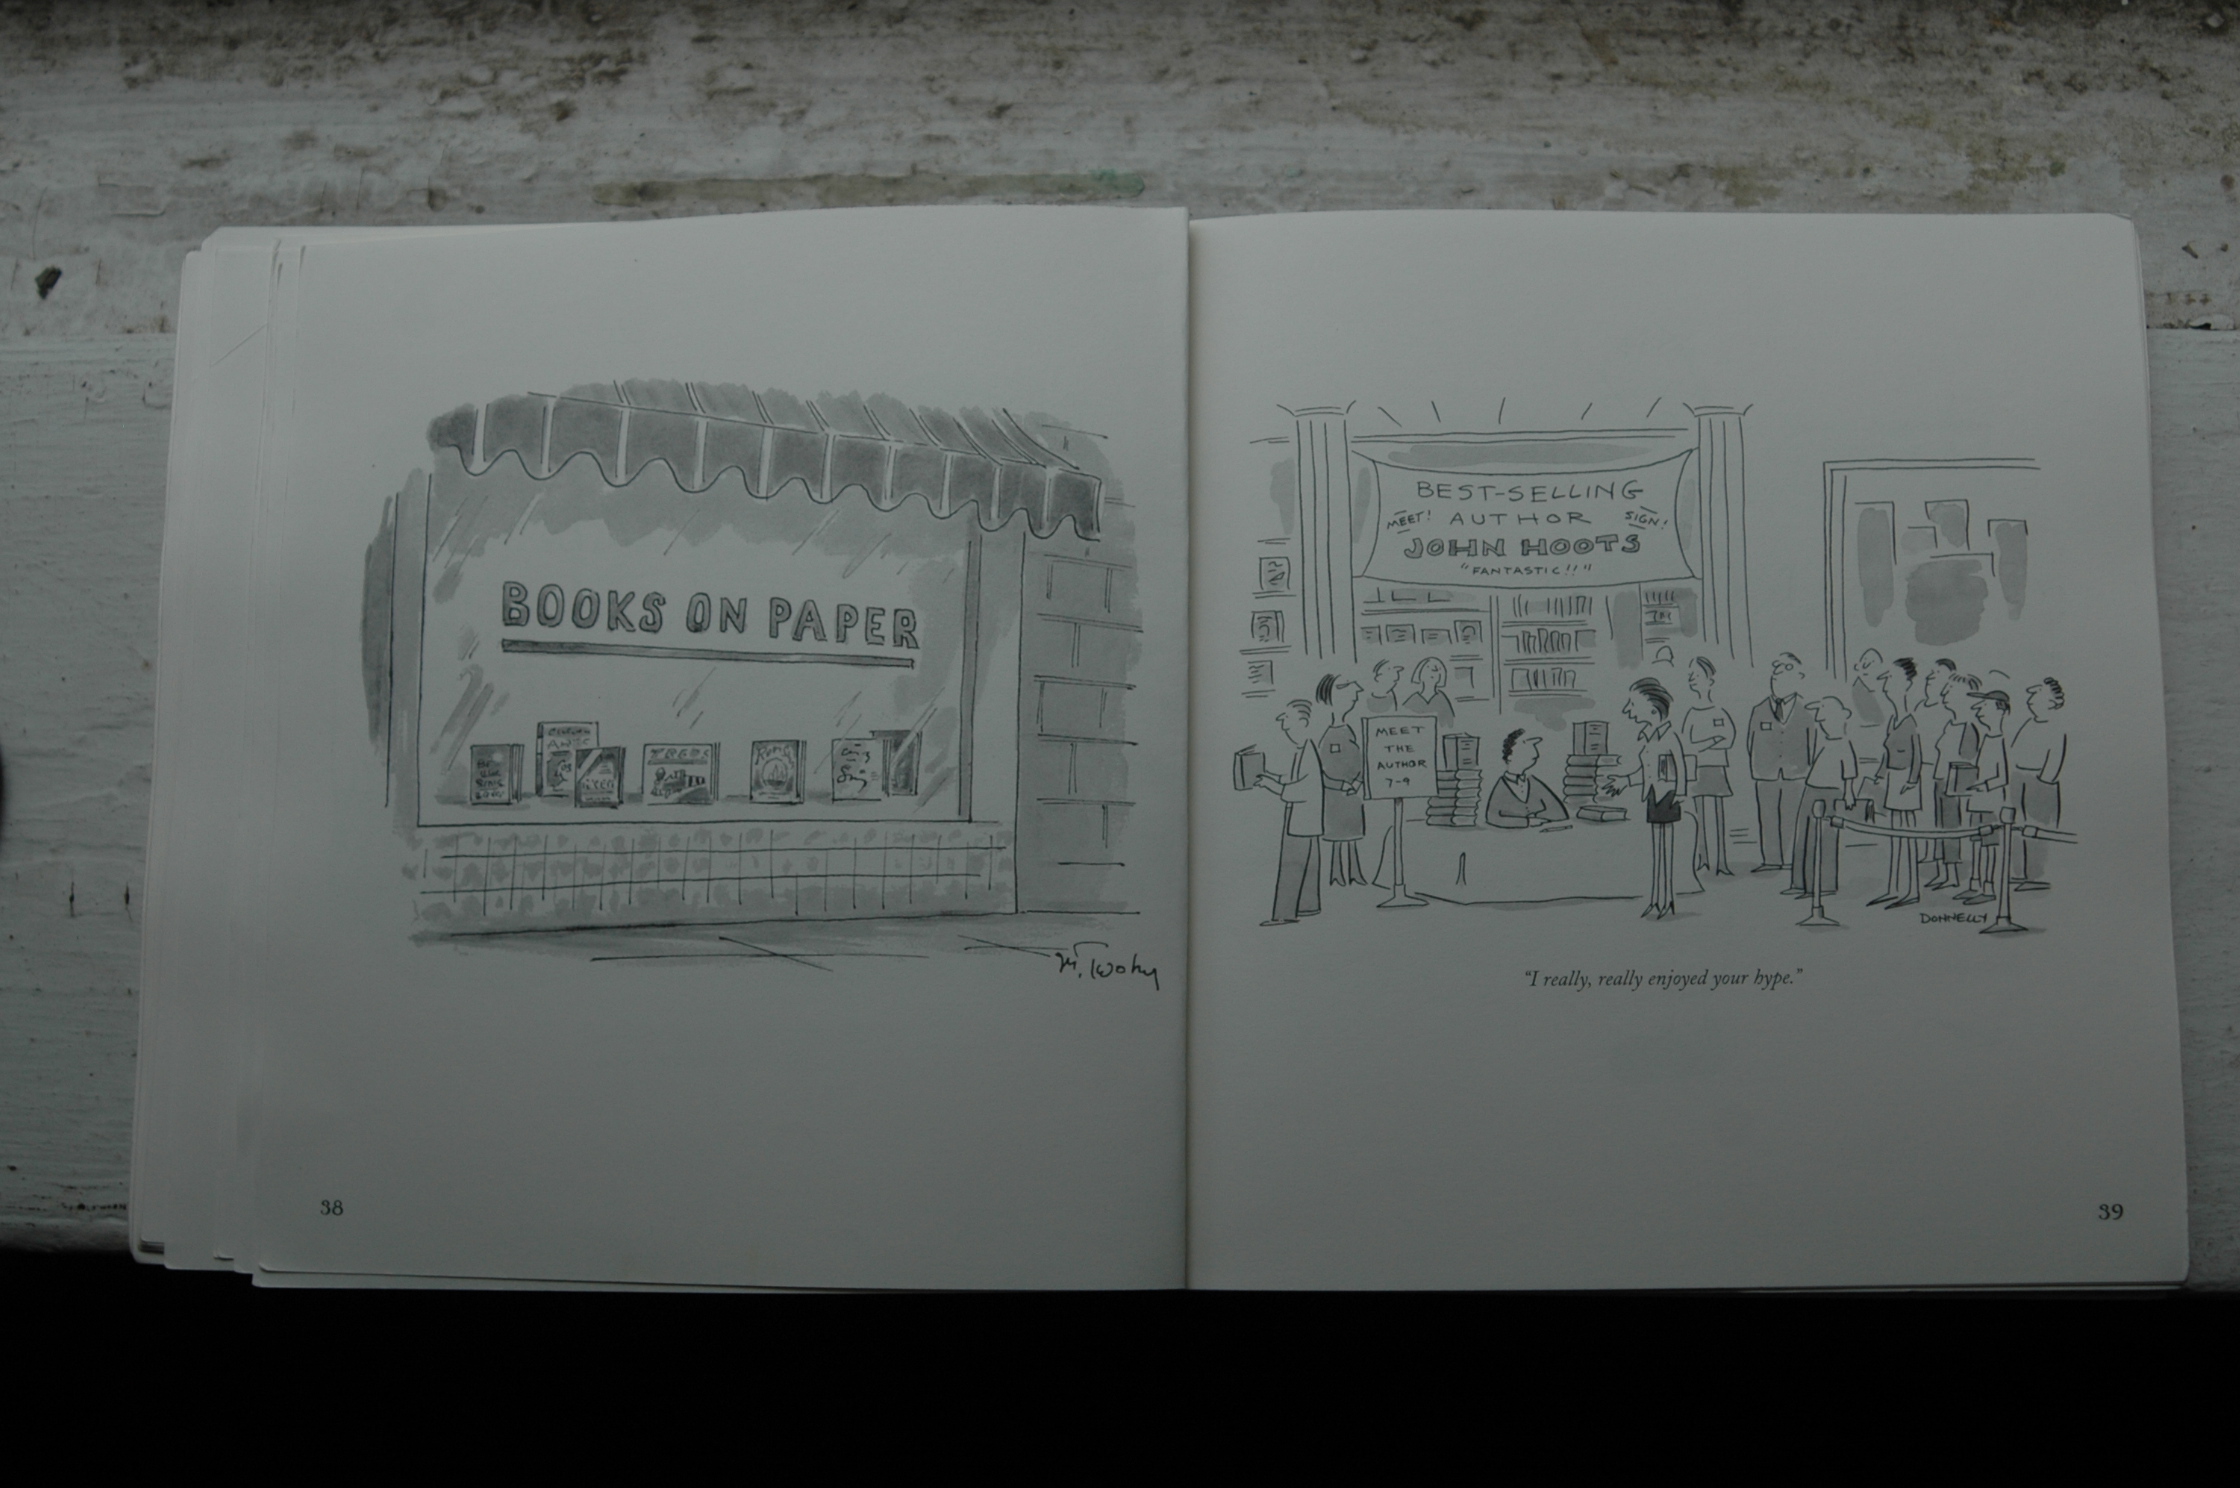 BOOKS ON PAPER
M. Twohy
38
BEST-SELLING
MEET! AUTHOR SIGN!
JOHN HOOTS
"FANTASTIC!!"
MEET
THE
AUTHOR
7-9
DONNELLY
"I really, really enjoyed your hype."
39